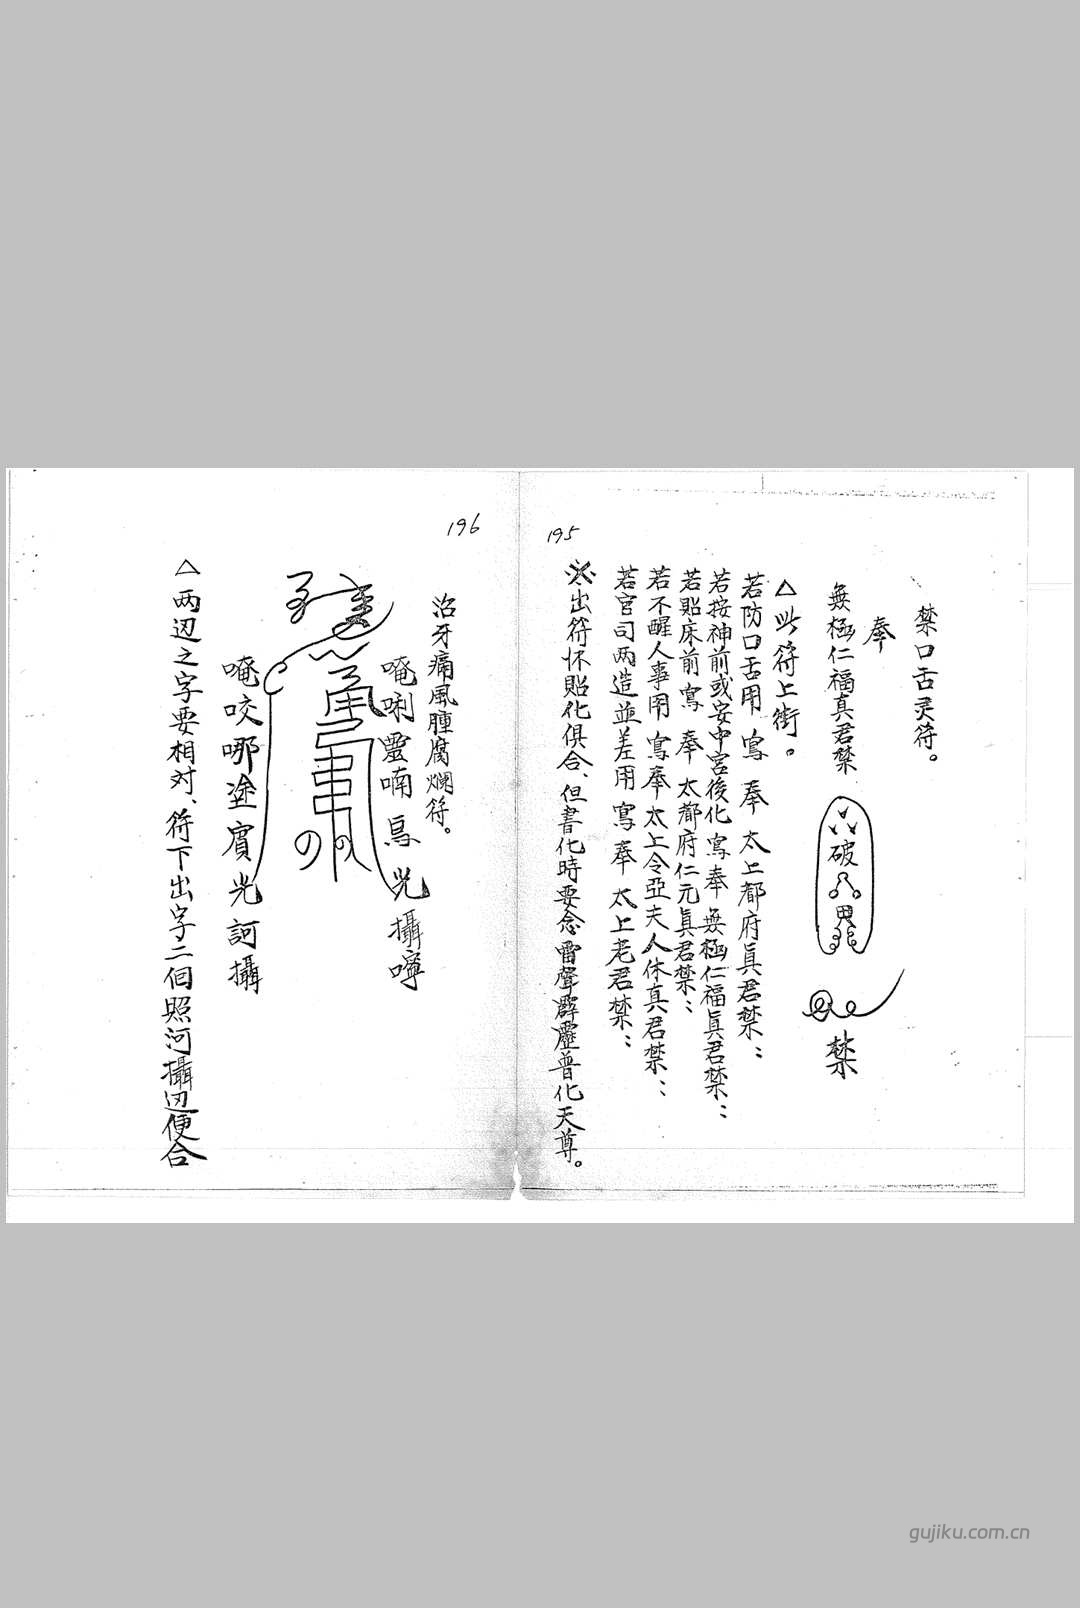 195
禁口舌灵符。
奉
無極仁福真君禁
破
禁
△此符上街。
若防口舌用寫奉太上都府眞君禁：
若按神前或安中宮後化寫奉無極仁福眞君禁：
若貼床前寫奉太都府仁元眞君禁：
若不醒人事用寫奉太上令亞夫人休真君禁：
若官司两造並差用寫奉太上老君禁：
※出符怀貼化俱合、但書化時要念雷聲霹靂普化天尊。
196
治牙痛風腫腐爛符。
唵唎靈喃
攝嚀
唵咬哪塗賓光訶攝
△两边之字要相对、符下出字二個照河攝边便合
gujiku.com.cn